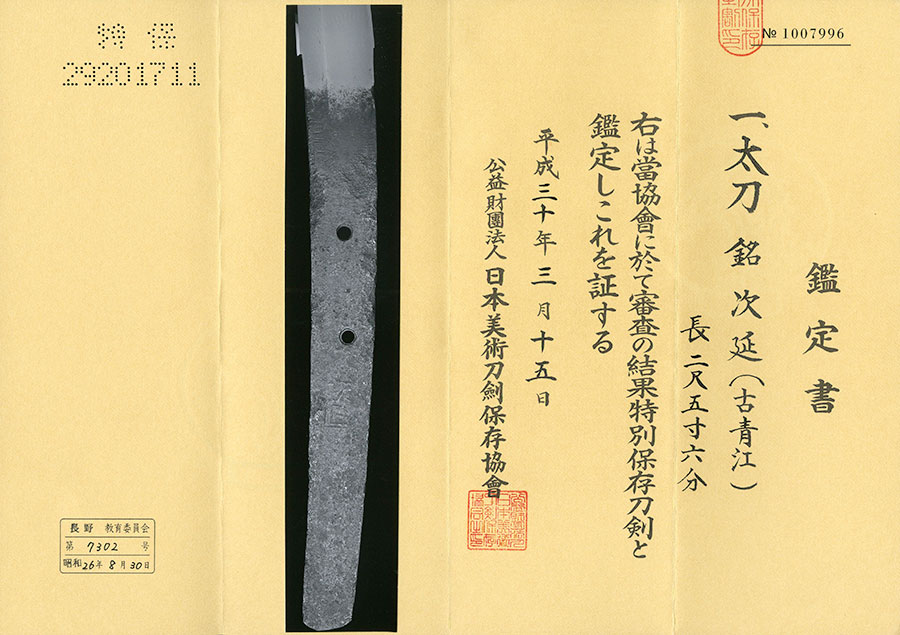 № 1007996
鑑定書
一、太刀 銘 次延(古青江)
長 二尺五寸六分
右は當協會に於て審査の結果特別保存刀剣と
鑑定しこれを証する
平成三十年三月十五日
公益財團法人 日本美術刀劍保存協會
特保
29201711
長野 教育委員会
第 7302 号
昭和26年8月30日